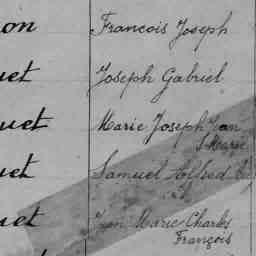 on François Joseph
uet Joseph Gabriel
uet Marie Joseph Jean
Marie
uet Samuel Alfred
uet Jean Marie Charles
François